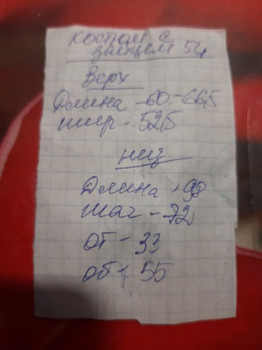 костюм с
зайцем 54
Верх
Длина - 60.-66,5
шир - 52,5
низ
Длина - 98
шаг - 72
от - 33
об - 55